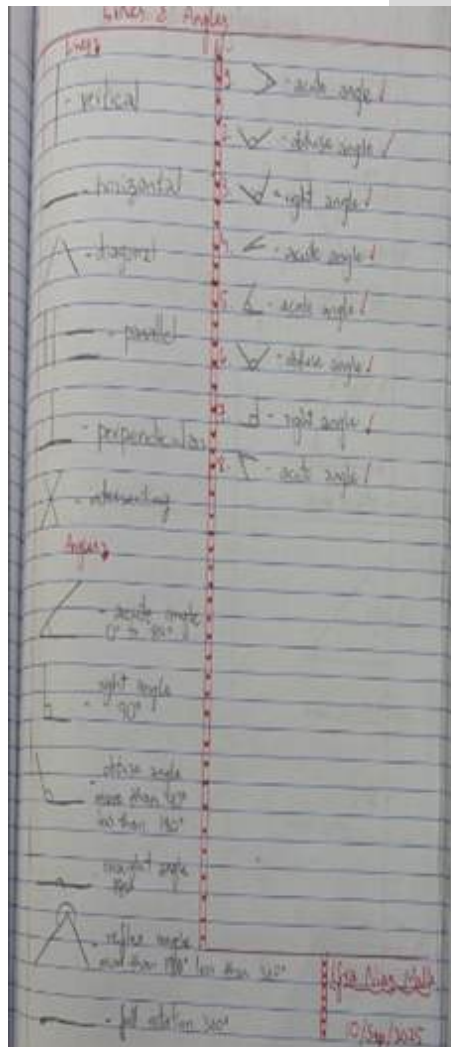 Lines & Angles
Lines
- vertical
- horizontal
- diagonal
- parallel
- perpendicular
- intersecting
Angles
- acute angle
0° to 89°
right angle
- 90°
obtuse angle
more than 90°
less than 180°
straight angle
- reflex angle
more than 180° less than 360°
- full rotation 360°
- acute angle
2. - obtuse angle
3. - right angle
4. - acute angle
5. - acute angle
6. - obtuse angle
7. - right angle
8. - acute angle
10/Sep/2025